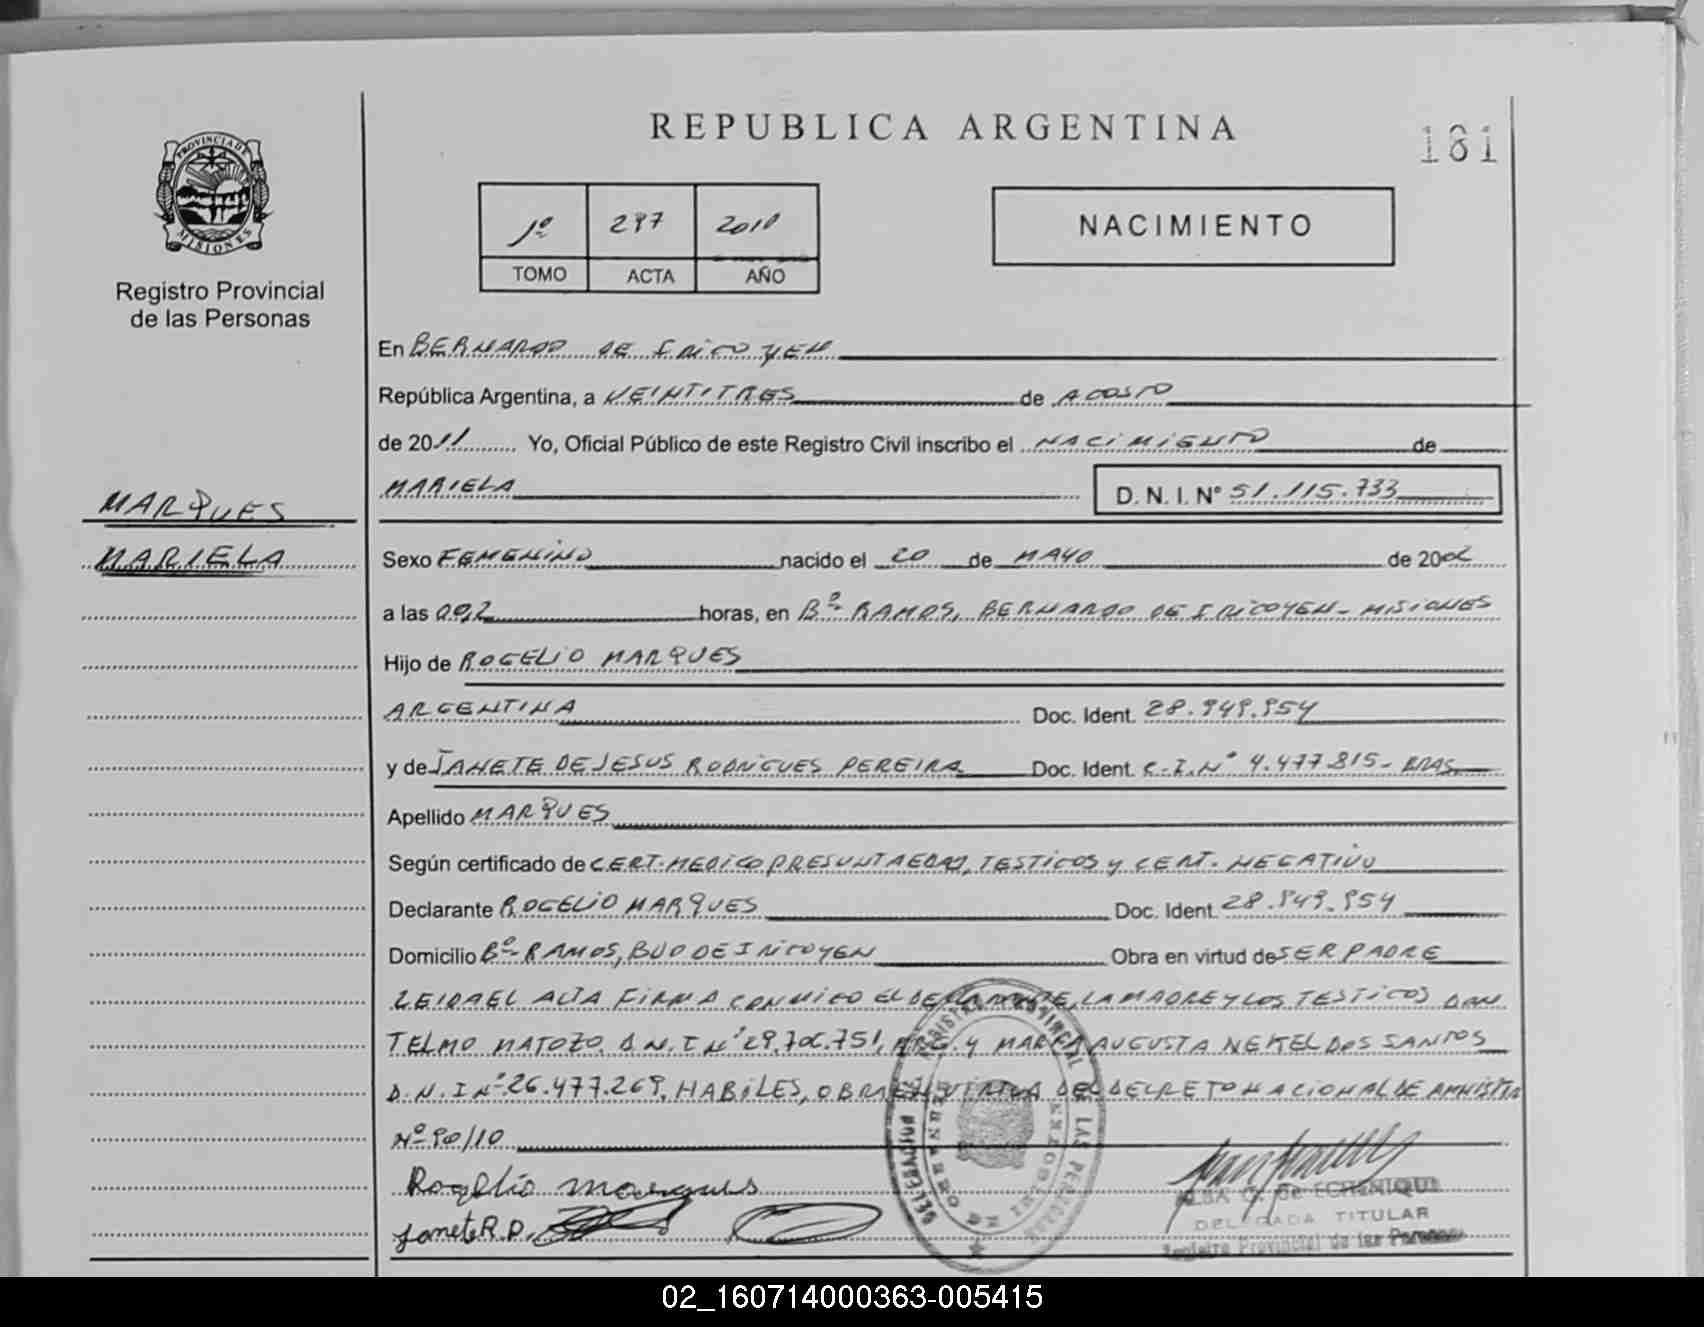 REPUBLICA ARGENTINA
181
PROVINCIA DE
MISIONES
Registro Provincial
de las Personas
1º 297 2010
TOMO ACTA AÑO
NACIMIENTO
En BERNARDO DE IRIGOYEN
República Argentina, a VEINTITRES de AGOSTO
de 2011 Yo, Oficial Público de este Registro Civil inscribo el NACIMIENTO de
MARIELA D. N. I. Nº 51.115.733
MARQUES
MARIELA
Sexo FEMENINO nacido el 20 de MAYO de 2002
a las 00,2 horas, en Bº RAMOS, BERNARDO DE IRIGOYEN - MISIONES
Hijo de ROGELIO MARQUES
ARGENTINA Doc. Ident. 28.949.954
y de JANETE DE JESUS RODRIGUES PEREIRA Doc. Ident. C.I.Nº 4.477.815- BRAS
Apellido MARQUES
Según certificado de CERT. MEDICO PRESUNTA EDAD, TESTIGOS y CERT. NEGATIVO
Declarante ROGELIO MARQUES Doc. Ident. 28.949.954
Domicilio Bº RAMOS, BDO DE IRIGOYEN Obra en virtud de SER PADRE
LEIDA EL ACTA FIRMA CONMIGO EL DECLARANTE, LA MADRE Y LOS TESTIGOS DON
TELMO MATOZO D.N.I Nº 29.706.751, ARG. Y MARIA AUGUSTA NEKEL DOS SANTOS
D.N.I Nº 26.477.269, HABILES, OBRA EN VIRTUD DEL DECRETO NACIONAL DE AMNISTIA
Nº 90/10
Rogelio marques
Janete R.P.
DELEGACION DE REGISTRO PROVINCIAL DE LAS PERSONAS
ALBA G. de ECHENIQUE
DELEGADA TITULAR
Registro Provincial de las Personas
02_160714000363-005415